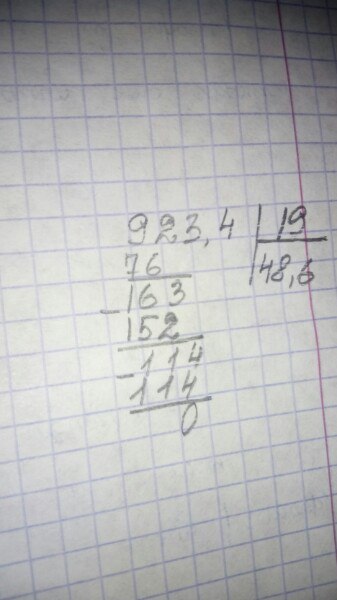 923,4 | 19
76 | 48,6
- 163
152
- 114
114
0